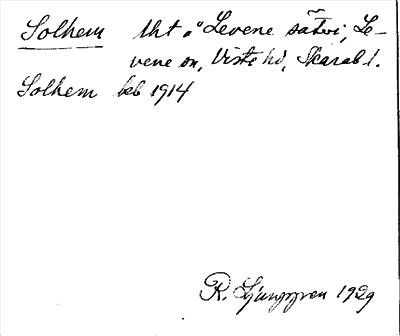 Solhem lht å Levene sätvi, Le-
vene sn, Viste hd, Skarab l.
Solhem keb 1914
R. Ljunggren 1929